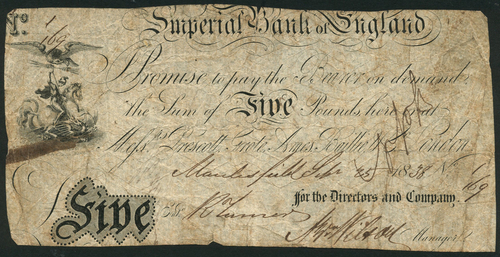 Imperial Bank of England
No. 1/169
Promise to pay the Bearer on demand
the Sum of Five Pounds here or at
Messrs Prescott, Grote, Ames, & Co. London
25 1838 No 1/169
for the Directors and Company.
£ Five
Manager